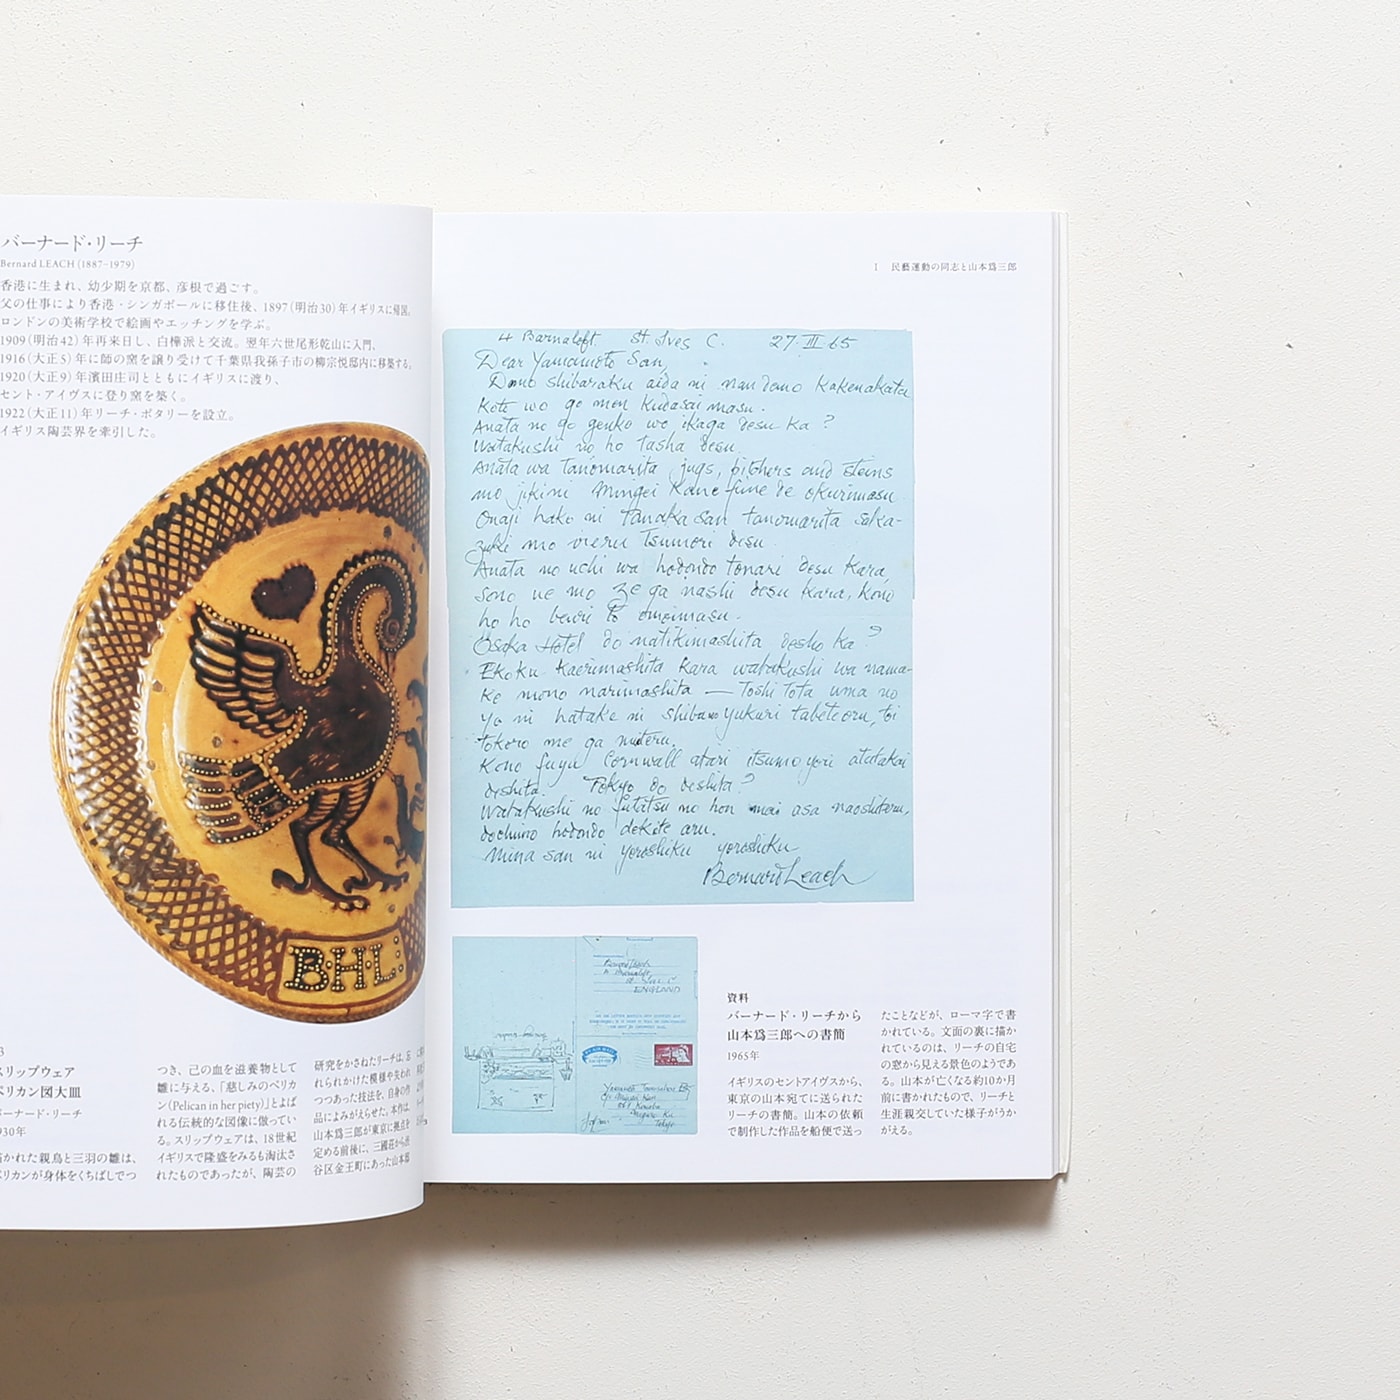 バーナード・リーチ
Bernard LEACH (1887–1979)
香港に生まれ、幼少期を京都、彦根で過ごす。
父の仕事により香港・シンガポールに移住後、1897(明治30)年イギリスに帰国。
ロンドンの美術学校で絵画やエッチングを学ぶ。
1909(明治42)年再来日し、白樺派と交流。翌年六世尾形乾山に入門。
1916(大正5)年に師の窯を譲り受けて千葉県我孫子市の柳宗悦邸内に移築する。
1920(大正9)年濱田庄司とともにイギリスに渡り、
セント・アイヴスに登り窯を築く。
1922(大正11)年リーチ・ポタリーを設立。
イギリス陶芸界を牽引した。
BHL:
3
スリップウェア
ペリカン図大皿
バーナード・リーチ
1930年
描かれた親鳥と三羽の雛は、
ペリカンが身体をくちばしでつ
つき、己の血を滋養物として
雛に与える、「慈しみのペリカ
ン(Pelican in her piety)」とよば
れる伝統的な図像に倣ってい
る。スリップウェアは、18世紀
イギリスで隆盛をみるも淘汰さ
れたものであったが、陶芸の
研究をかさねたリーチは、忘
れられかけた模様や失われ
つつあった技法を、自身の作
品によみがえらせた。本作は、
山本爲三郎が東京に拠点を
定める前後に、三國荘から渋
谷区金王町にあった山本邸
I 民藝運動の同志と山本爲三郎
4 Barnaloft. St. Ives C. 27 III 65
Dear Yamamoto San,
Domo shibaraku aida ni nan demo kakenakata
koto wo go men kudasai masu.
Anata no go genko wo ikaga desu ka?
Watakushi no ho tasha desu
Anata wa tanomarita jugs, pitchers and steins
mo jikini Mingei Kane fune de okurimasu.
Onaji hako ni Tanaka San tanomarita saka-
zuki mo vieru tsumori desu.
Anata no uchi wa hodondo tonari desu kara,
sono ue mo ze ga nashi desu kara, kono
ho ho benri to omoimasu.
Osaka Hotel do natikimashita desho ka?
Ekoku kaerimashita kara watakushi wa nama-
ke mono narimashita — Toshi Tota uma no
yo ni hatake ni shiba yukuri tabeteoru, toi
tokoro me ga miteru.
Kono fuyu Cornwall atari itsumo yori atatakai
deshita. Tokyo do deshita?
Watakushi no futatsu no hon mai asa naoshiteru,
dochimo hodondo dekite aru.
Mina san ni yoroshiku yoroshiku
Bernard Leach
Bernard Leach
4 Barnaloft,
St. Ives C
ENGLAND
資料
バーナード・リーチから
山本爲三郎への書簡
1965年
イギリスのセントアイヴスから、
東京の山本宛てに送られた
リーチの書簡。山本の依頼
で制作した作品を船便で送っ
たことなどが、ローマ字で書
かれている。文面の裏に描か
れているのは、リーチの自宅
の窓から見える景色のようであ
る。山本が亡くなる約10か月
前に書かれたもので、リーチと
生涯親交していた様子がうか
がえる。